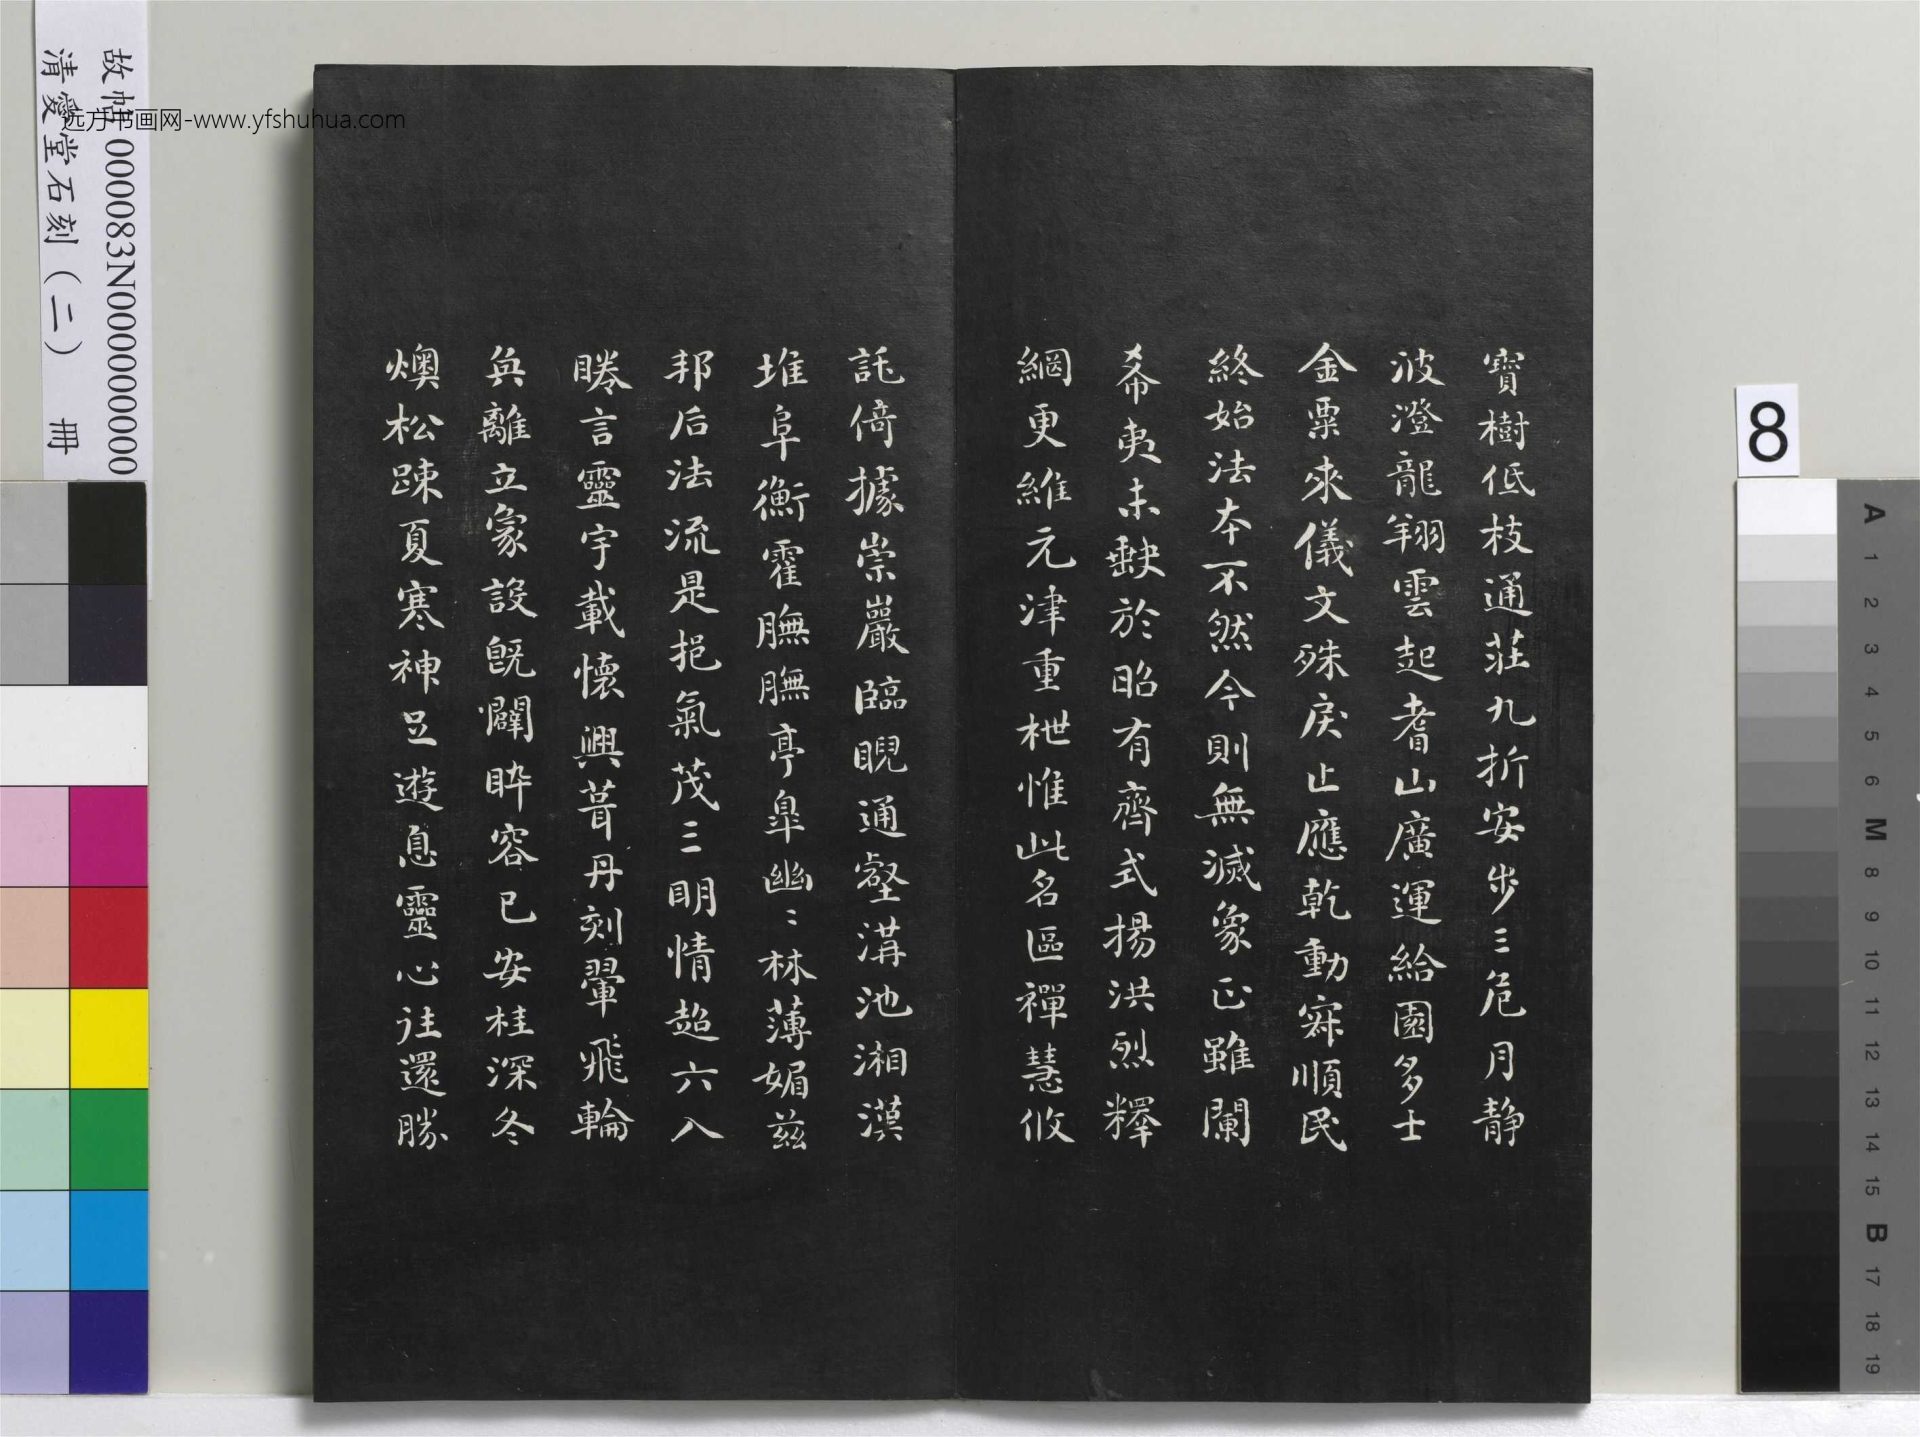 寶樹低枝通莊九折安步三危月静
波澄龍翔雲起耆山廣運給園多士
金粟來儀文殊戾止應乾動寂順民
終始法本不然今則無滅象正雖闌
希夷未缺於昭有齊式揚洪烈釋
網更維元津重枻惟此名區禪慧攸
託倚據崇巖臨睨通壑溝池湘漢
堆阜衡霍膴膴亭皐幽〻林薄媚茲
邦后法流是挹氣茂三明情超六入
睠言靈宇載懷興葺丹刻翬飛輪
奐離立象設旣闢睟容已安桂深冬
燠松踈夏寒神足遊息靈心往還勝
故帖000083N000000000
清愛堂石刻（二） 冊
远方书画网-www.yfshuhua.com
8
A 1 2 3 4 5 6 M 8 9 10 11 12 13 14 15 B 17 18 19